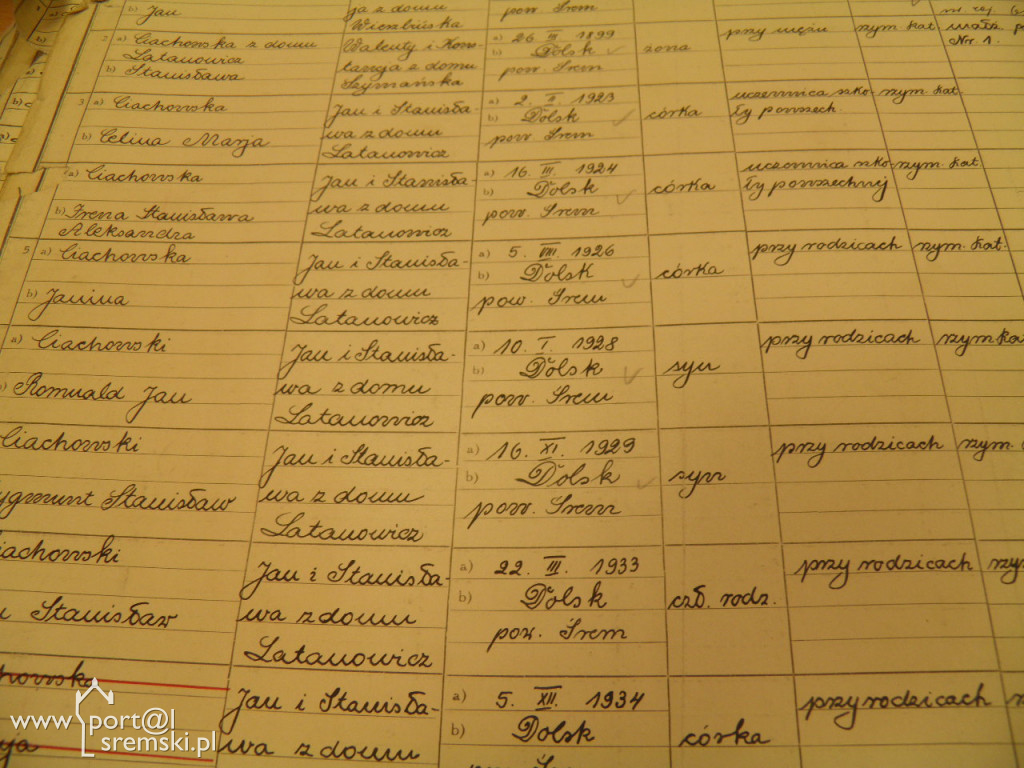 b) Jan
ja z domu
Wieszbińska
pow. Śrem
2 a) Ciachowska z domu
Latanowicz
b) Stanisława
Walenty i Kons-
tancja z domu
Szymańska
a) 26 1899
b) Dolsk
pow. Śrem
żona
przy mężu
rzym. kat.
mała
Nr. 1.
3 a) Ciachowska
b) Celina Marja
Jan i Stanisła-
wa z domu
Latanowicz
a) 2. II. 1923
b) Dolsk
pow. Śrem
córka
uczennica szko-
ły powszech.
rzym. kat.
a) Ciachowska
b) Irena Stanisława
Aleksandra
Jan i Stanisła-
wa z domu
Latanowicz
a) 16. III. 1924
b) Dolsk
pow. Śrem
córka
uczennica szko-
ły powszechnej
rzym. kat
5 a) Ciachowska
b) Janina
Jan i Stanisła-
wa z domu
Latanowicz
a) 5. VIII. 1926
b) Dolsk
pow. Śrem
córka
przy rodzicach
rzym. kat.
a) Ciachowski
b) Romuald Jan
Jan i Stanisła-
wa z domu
Latanowicz
a) 10. I. 1928
b) Dolsk
pow. Śrem
syn
przy rodzicach
rzym ka
Ciachowski
ygmunt Stanisław
Jan i Stanisła-
wa z domu
Latanowicz
a) 16. XI. 1929
b) Dolsk
pow. Śrem
syn
przy rodzicach
rzym.
iachowski
n Stanisław
Jan i Stanisła-
wa z domu
Latanowicz
a) 22. III. 1933
b) Dolsk
pow. Śrem
czł. rodz.
przy rodzicach
rzy
howska
ja
Jan i Stanisła-
wa z domu
a) 5. XII. 1934
b) Dolsk
córka
przy rodzicach
www.port@l
sremski.pl